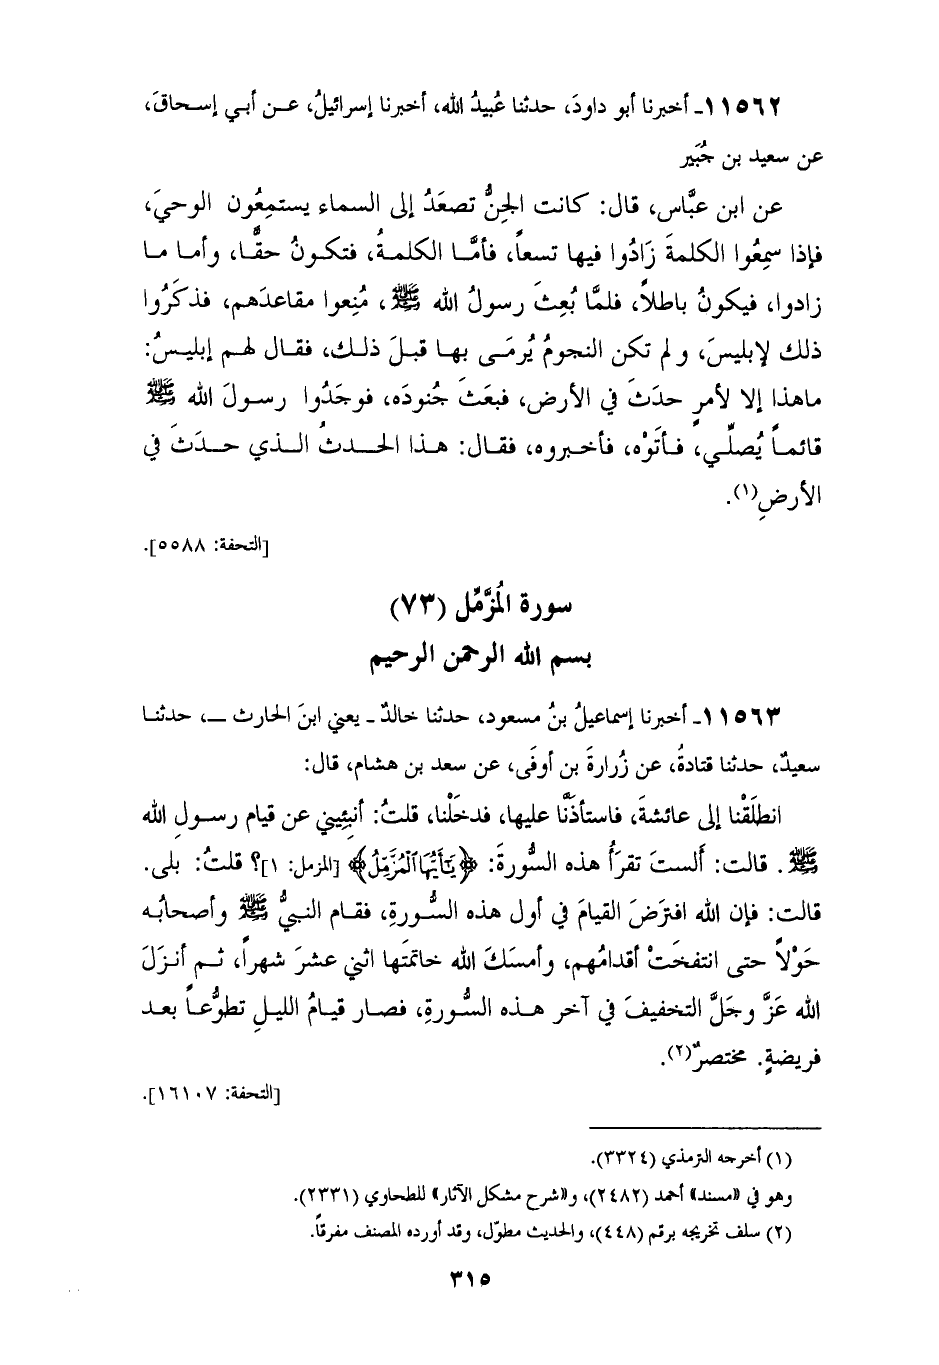 ١١٥٦٢ـ أخبرنا أبو داودَ، حدثنا عُبيدُ الله، أخبرنا إسرائيلُ، عـن أبـي إسـحاقَ،
عن سعيد بن جُبَير
عن ابن عبَّاس، قال: كانت الجِنُّ تصعَدُ إلى السماء يستمِعُون الوحيَ،
فإذا سمِعُوا الكلمةَ زَادُوا فيها تسعاً، فأمَّا الكلمةُ، فتكونُ حقًّا، وأما ما
زادوا، فيكونُ باطلاً، فلمَّا بُعِثَ رسولُ الله ﷺ، مُنِعوا مقاعدَهم، فذكَرُوا
ذلك لإبليسَ، ولم تكن النجومُ يُرمَى بها قبلَ ذلك، فقال لهم إبليسُ:
ماهذا إلا لأمرٍ حدَثَ في الأرض، فبعَثَ جُنودَه، فوجَدُوا رسولَ الله ﷺ
قائماً يُصلِّي، فأتَوْه، فأخبروه، فقال: هذا الحدثُ الذي حدَثَ في
الأرضِ(١).
[التحفة: ٥٥٨٨].
سورة المُزَّمِّل (٧٣)
بسم الله الرحمن الرحيم
١١٥٦٣ـ أخبرنا إسماعيلُ بنُ مسعود، حدثنا خالدٌ ـ يعني ابنَ الحارث ـ، حدثنا
سعيدٌ، حدثنا قتادةُ، عن زُرارةَ بن أوفَى، عن سعد بن هشام، قال:
انطلَقْنا إلى عائشةَ، فاستأذَنَّا عليها، فدخَلْنا، قلتُ: أنبِئِيني عن قيام رسولِ الله
ﷺ. قالت: أَلستَ تقرَأُ هذه السُّورةَ: ﴿يَٰٓأَيُّهَا ٱلْمُزَّمِّلُ﴾ [المزمل: ١]؟ قلتُ: بلى.
قالت: فإن الله افترَضَ القيامَ في أول هذه السُّورةِ، فقام النبيُّ ﷺ وأصحابُه
حَوْلاً حتى انتفخَتْ أقدامُهم، وأمسَكَ الله خاتمتَها اثني عشرَ شهراً، ثم أنزَلَ
الله عَزَّ وجَلَّ التخفيفَ في آخر هذه السُّورةِ، فصار قيامُ الليلِ تطوُّعاً بعد
فريضةٍ. مختصرٌ(٢).
[التحفة: ١٦١٠٧].
(١) أخرجه الترمذي (٣٣٢٤).
وهو في «مسند» أحمد (٢٤٨٢)، و«شرح مشكل الآثار» للطحاوي (٢٣٣١).
(٢) سلف تخريجه برقم (٤٤٨)، والحديث مطوّل، وقد أورده المصنف مفرقاً.
٣١٥